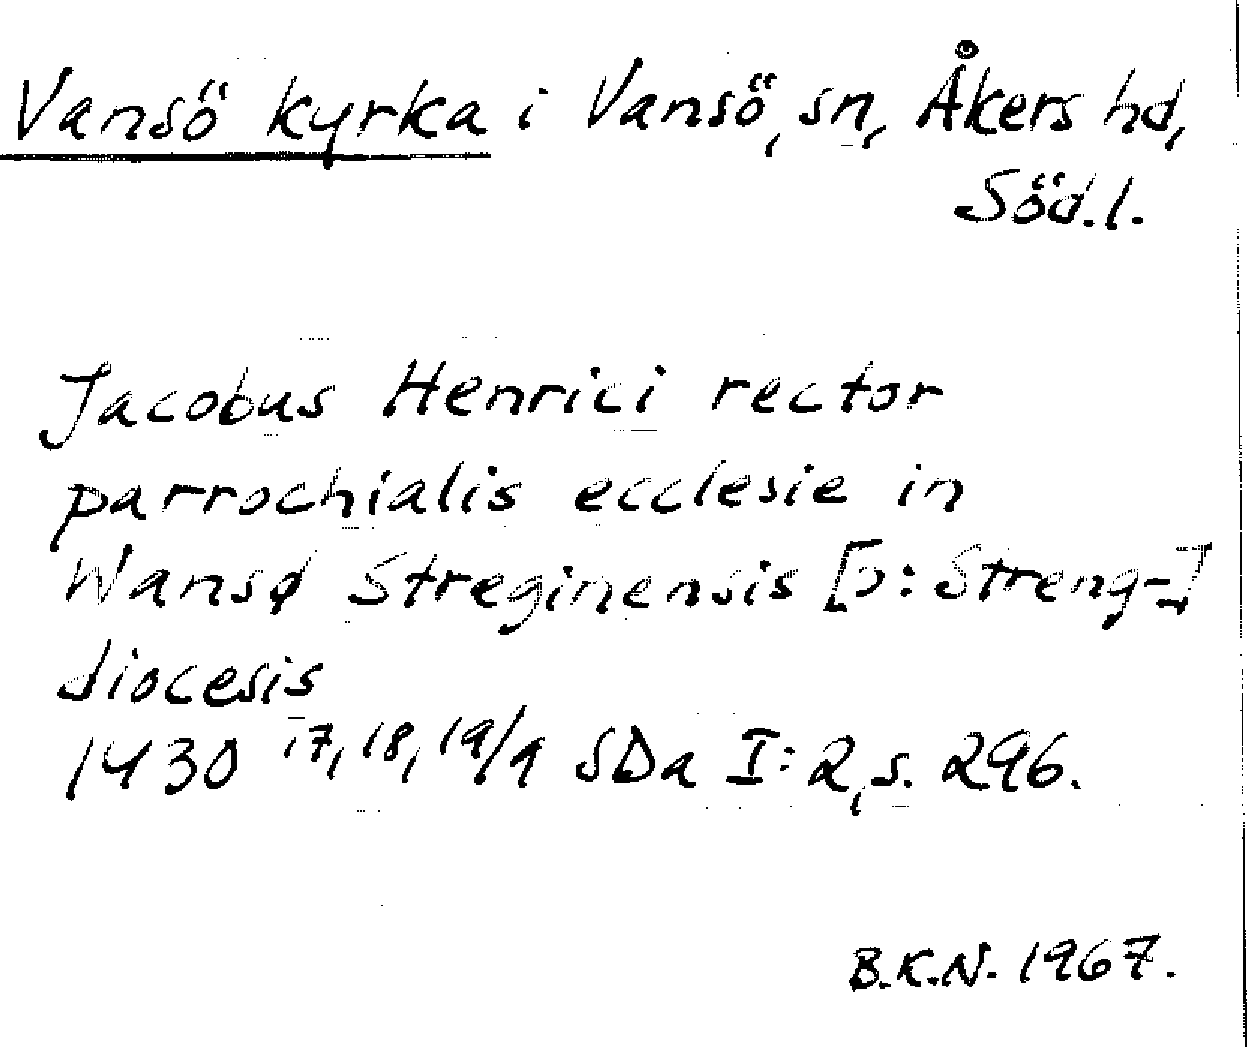 Vansö kyrka i Vansö, sn, Åkers hd,
Söd.l.
Jacobus Henrici rector
parrochialis ecclesie in
Wansø Streginensis [ɔ: Streng-]
diocesis
1430 17, 18, 19/9 SDa I: 2, s. 296.
B.K.N. 1967.